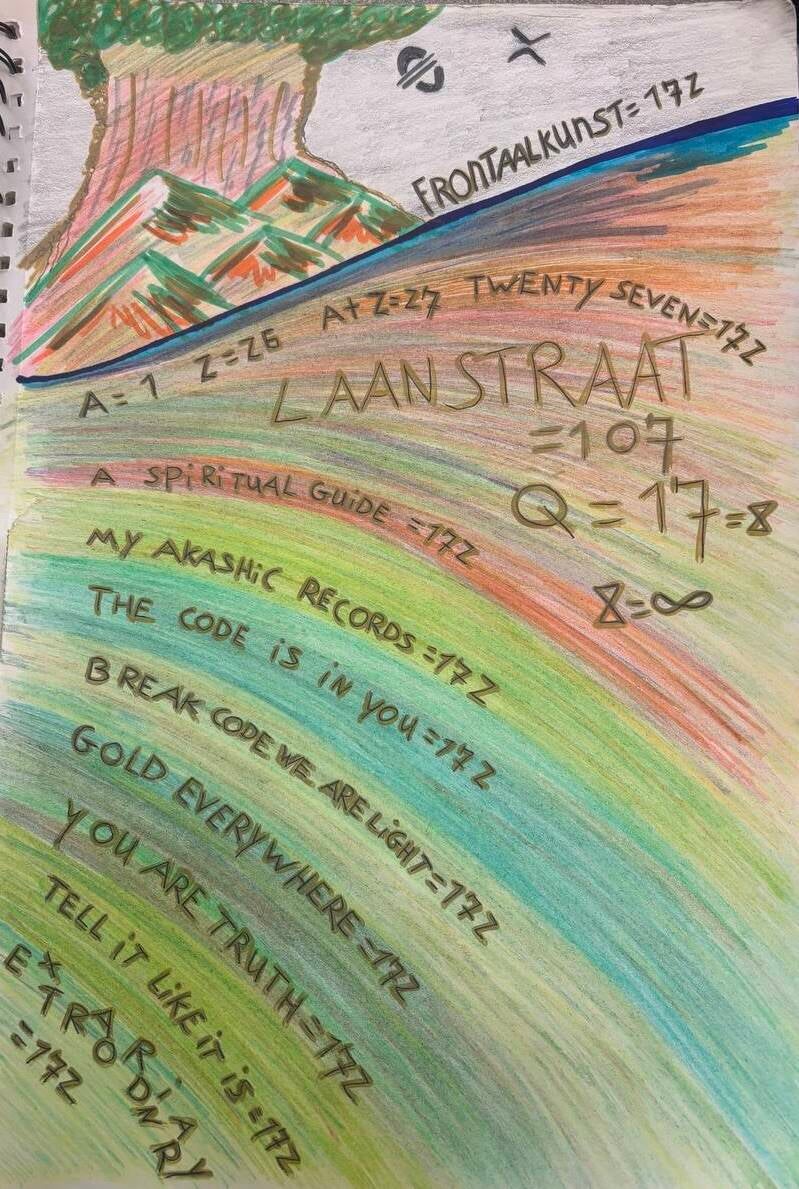 FRONTAALKUNST=172
A=1 Z=26 A+Z=27 TWENTY SEVEN=172
LAANSTRAAT
=107
Q=17=8
8=∞
A SPiRiTUAL GUiDE =172
MY AKASHiC RECORDS=172
THE CODE iS iN YOU=172
BREAK CODE WE ARE LiGHT=172
GOLD EVERYWHERE=172
YOU ARE TRUTH=172
TELL iT LiKE iT iS=172
EXTRAORDiNARY
=172